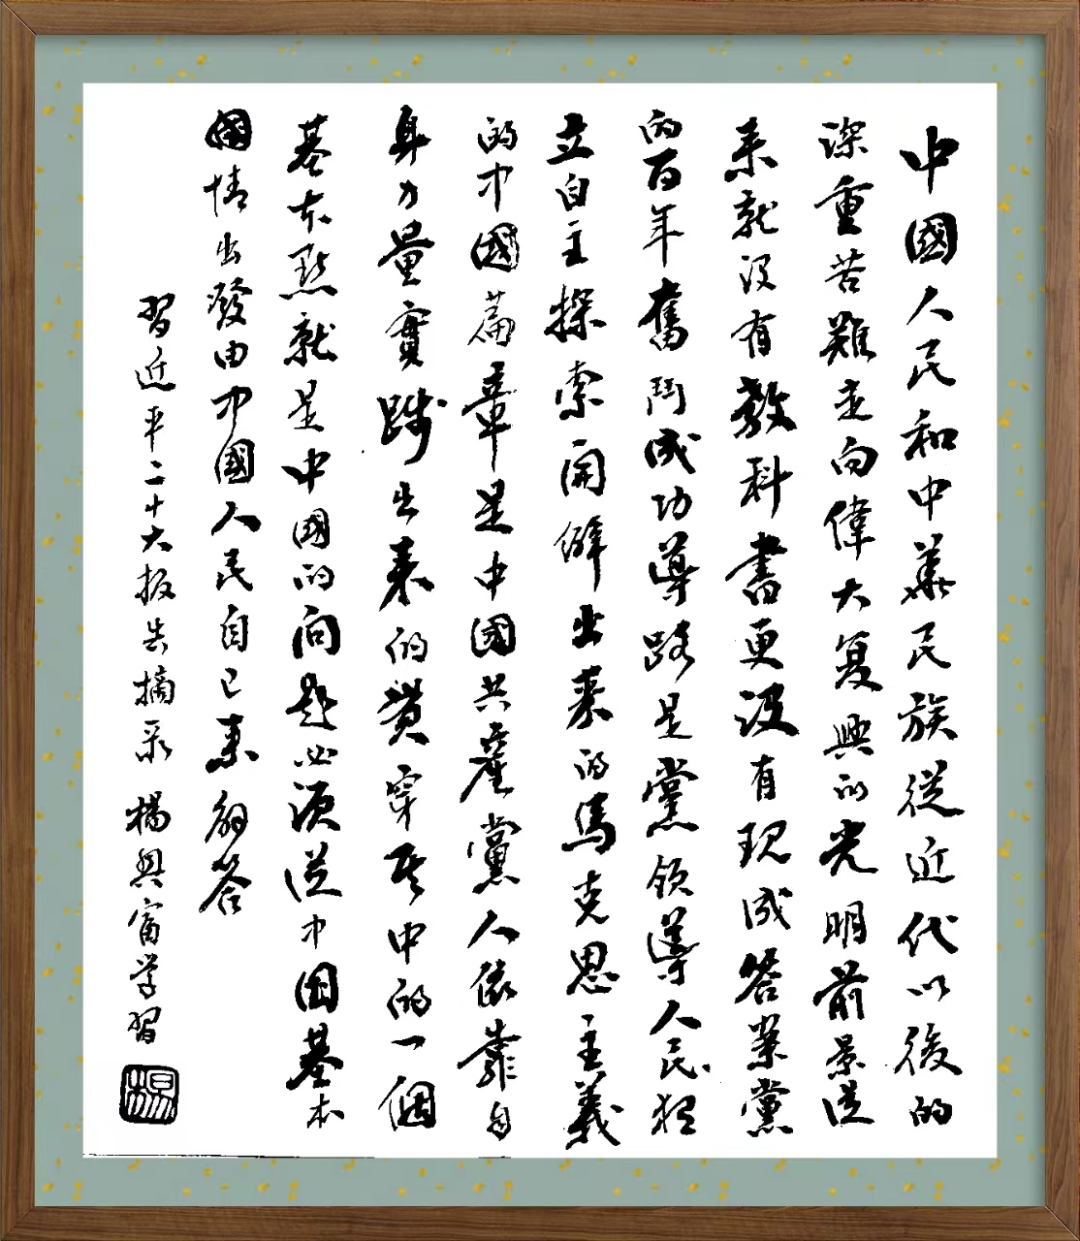 中國人民和中華民族從近代以後的
深重苦難走向偉大復興的光明前景從
來就沒有教科書更沒有現成答案黨
的百年奮鬥成功導路是黨領導人民独
立自主探索開僻出来的馬克思主義
的中國篇章是中國共產黨人依靠自
身力量實踐出来的貫穿其中的一個
基本點就是中國的问题必须從中国基本
國情出發由中國人民自己来解答
習近平二十大报告摘录 楊興富学習
楊